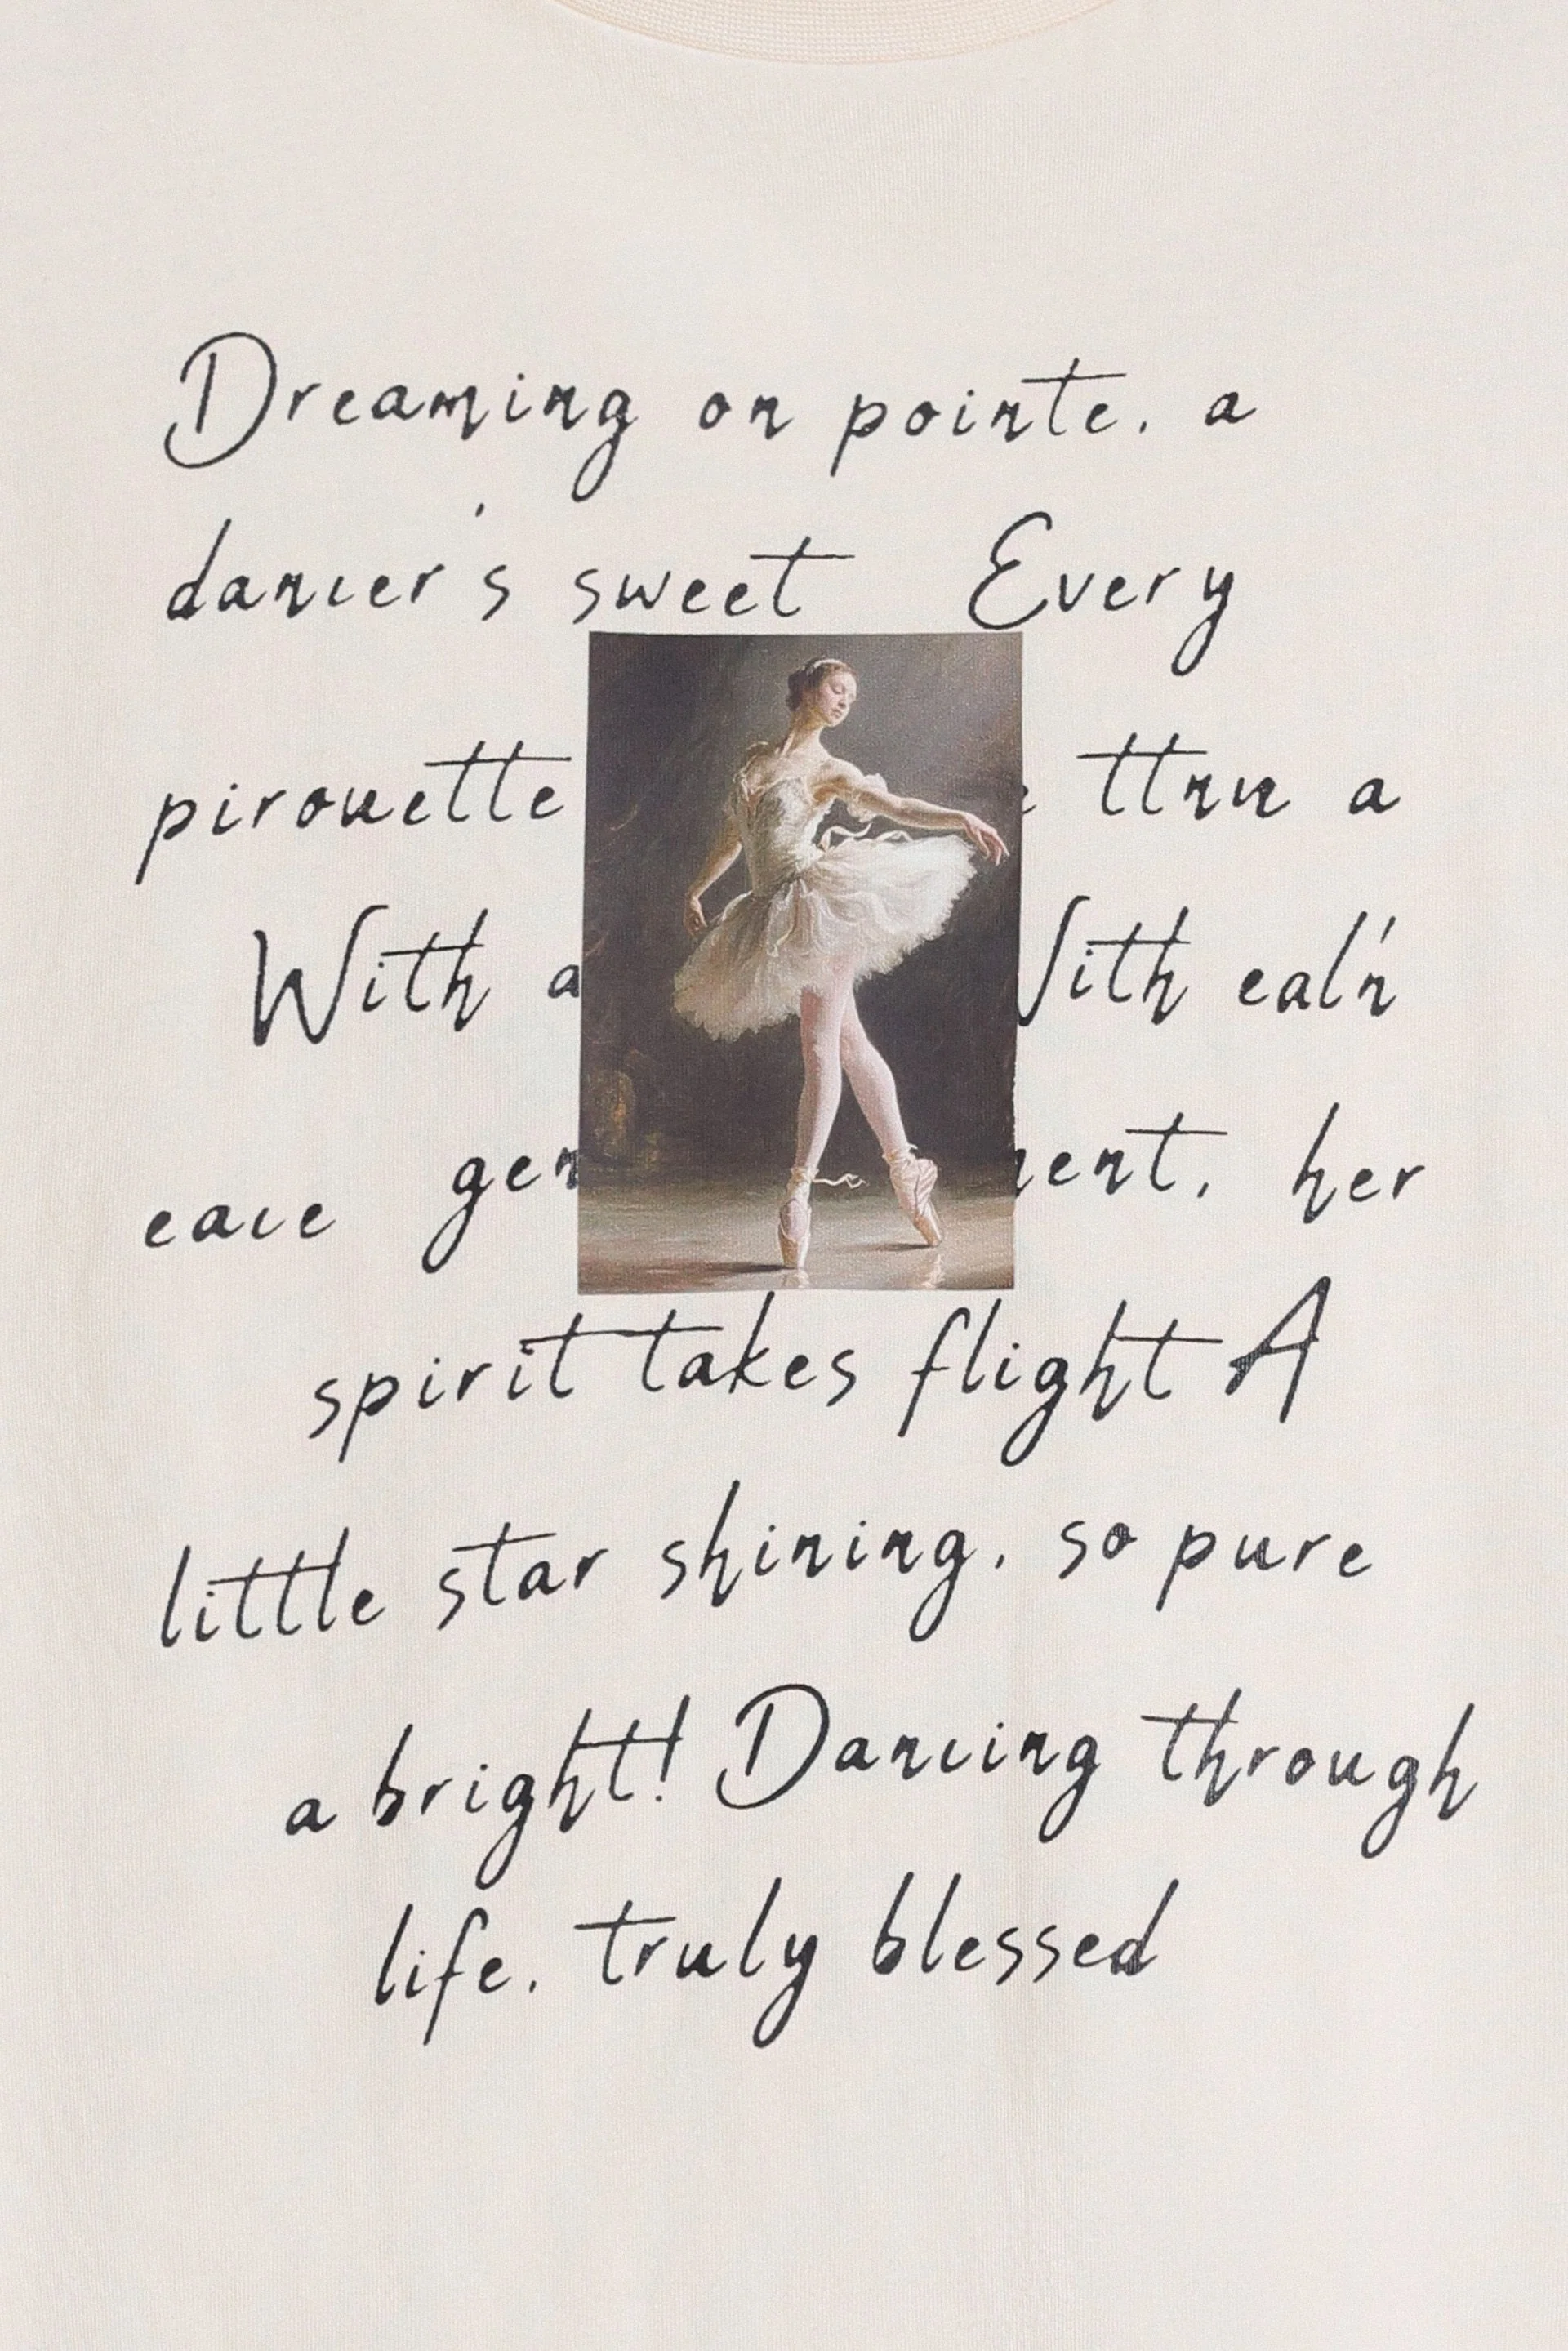 Dreaming on pointe. a
dancer's sweet Every
pirouette a
With a With
gen her
spirit takes flight A
little star shining. so pure
a bright! Dancing through
life. truly blessed